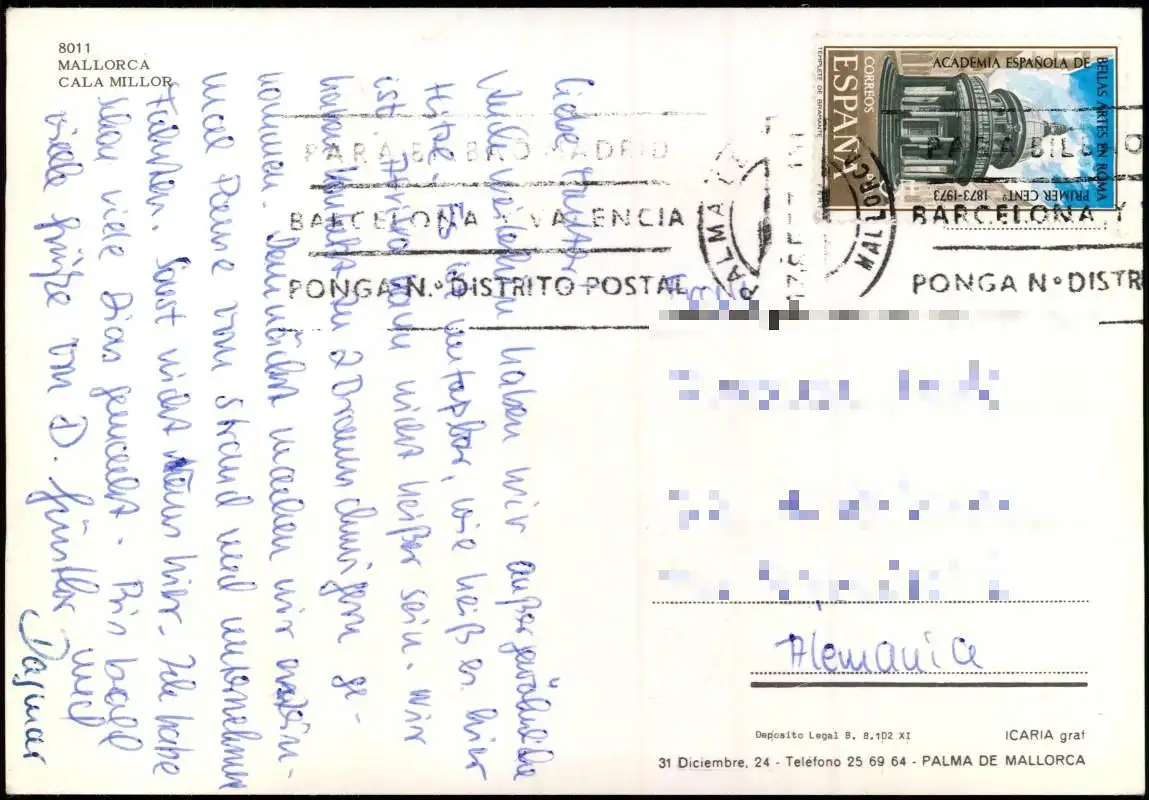 8011
MALLORCA
CALA MILLOR
Liebe
haben wir außergewöhnliche
Hitze. Es ist unfaßbar, wie heiß es hier
ist. Afrika kann nicht heißer sein. Wir
haben 2 ge-
nommen. Demnächst machen wir
mal Pause vom Strand und unternehmen
Fahrten. Sonst nichts Neues hier. Ich habe
schon viele Dias gemacht. Bis bald
viele Grüße von D. Günther und
Dagmar
CORREOS
ESPAÑA
TEMPLETE DE BRAMANTE
ACADEMIA ESPAÑOLA DE
BELLAS ARTES EN ROMA
PRIMER CENTº 1873-1973
PARA BILBAO MADRID
BARCELONA Y VALENCIA
PONGA N.º DISTRITO POSTAL
PALMA
MALLORCA
PARA BILBAO
BARCELONA Y
PONGA Nº DISTR
Alemania
Deposito Legal B. 8.102 XI
ICARIA graf
31 Diciembre, 24 - Teléfono 25 69 64 - PALMA DE MALLORCA